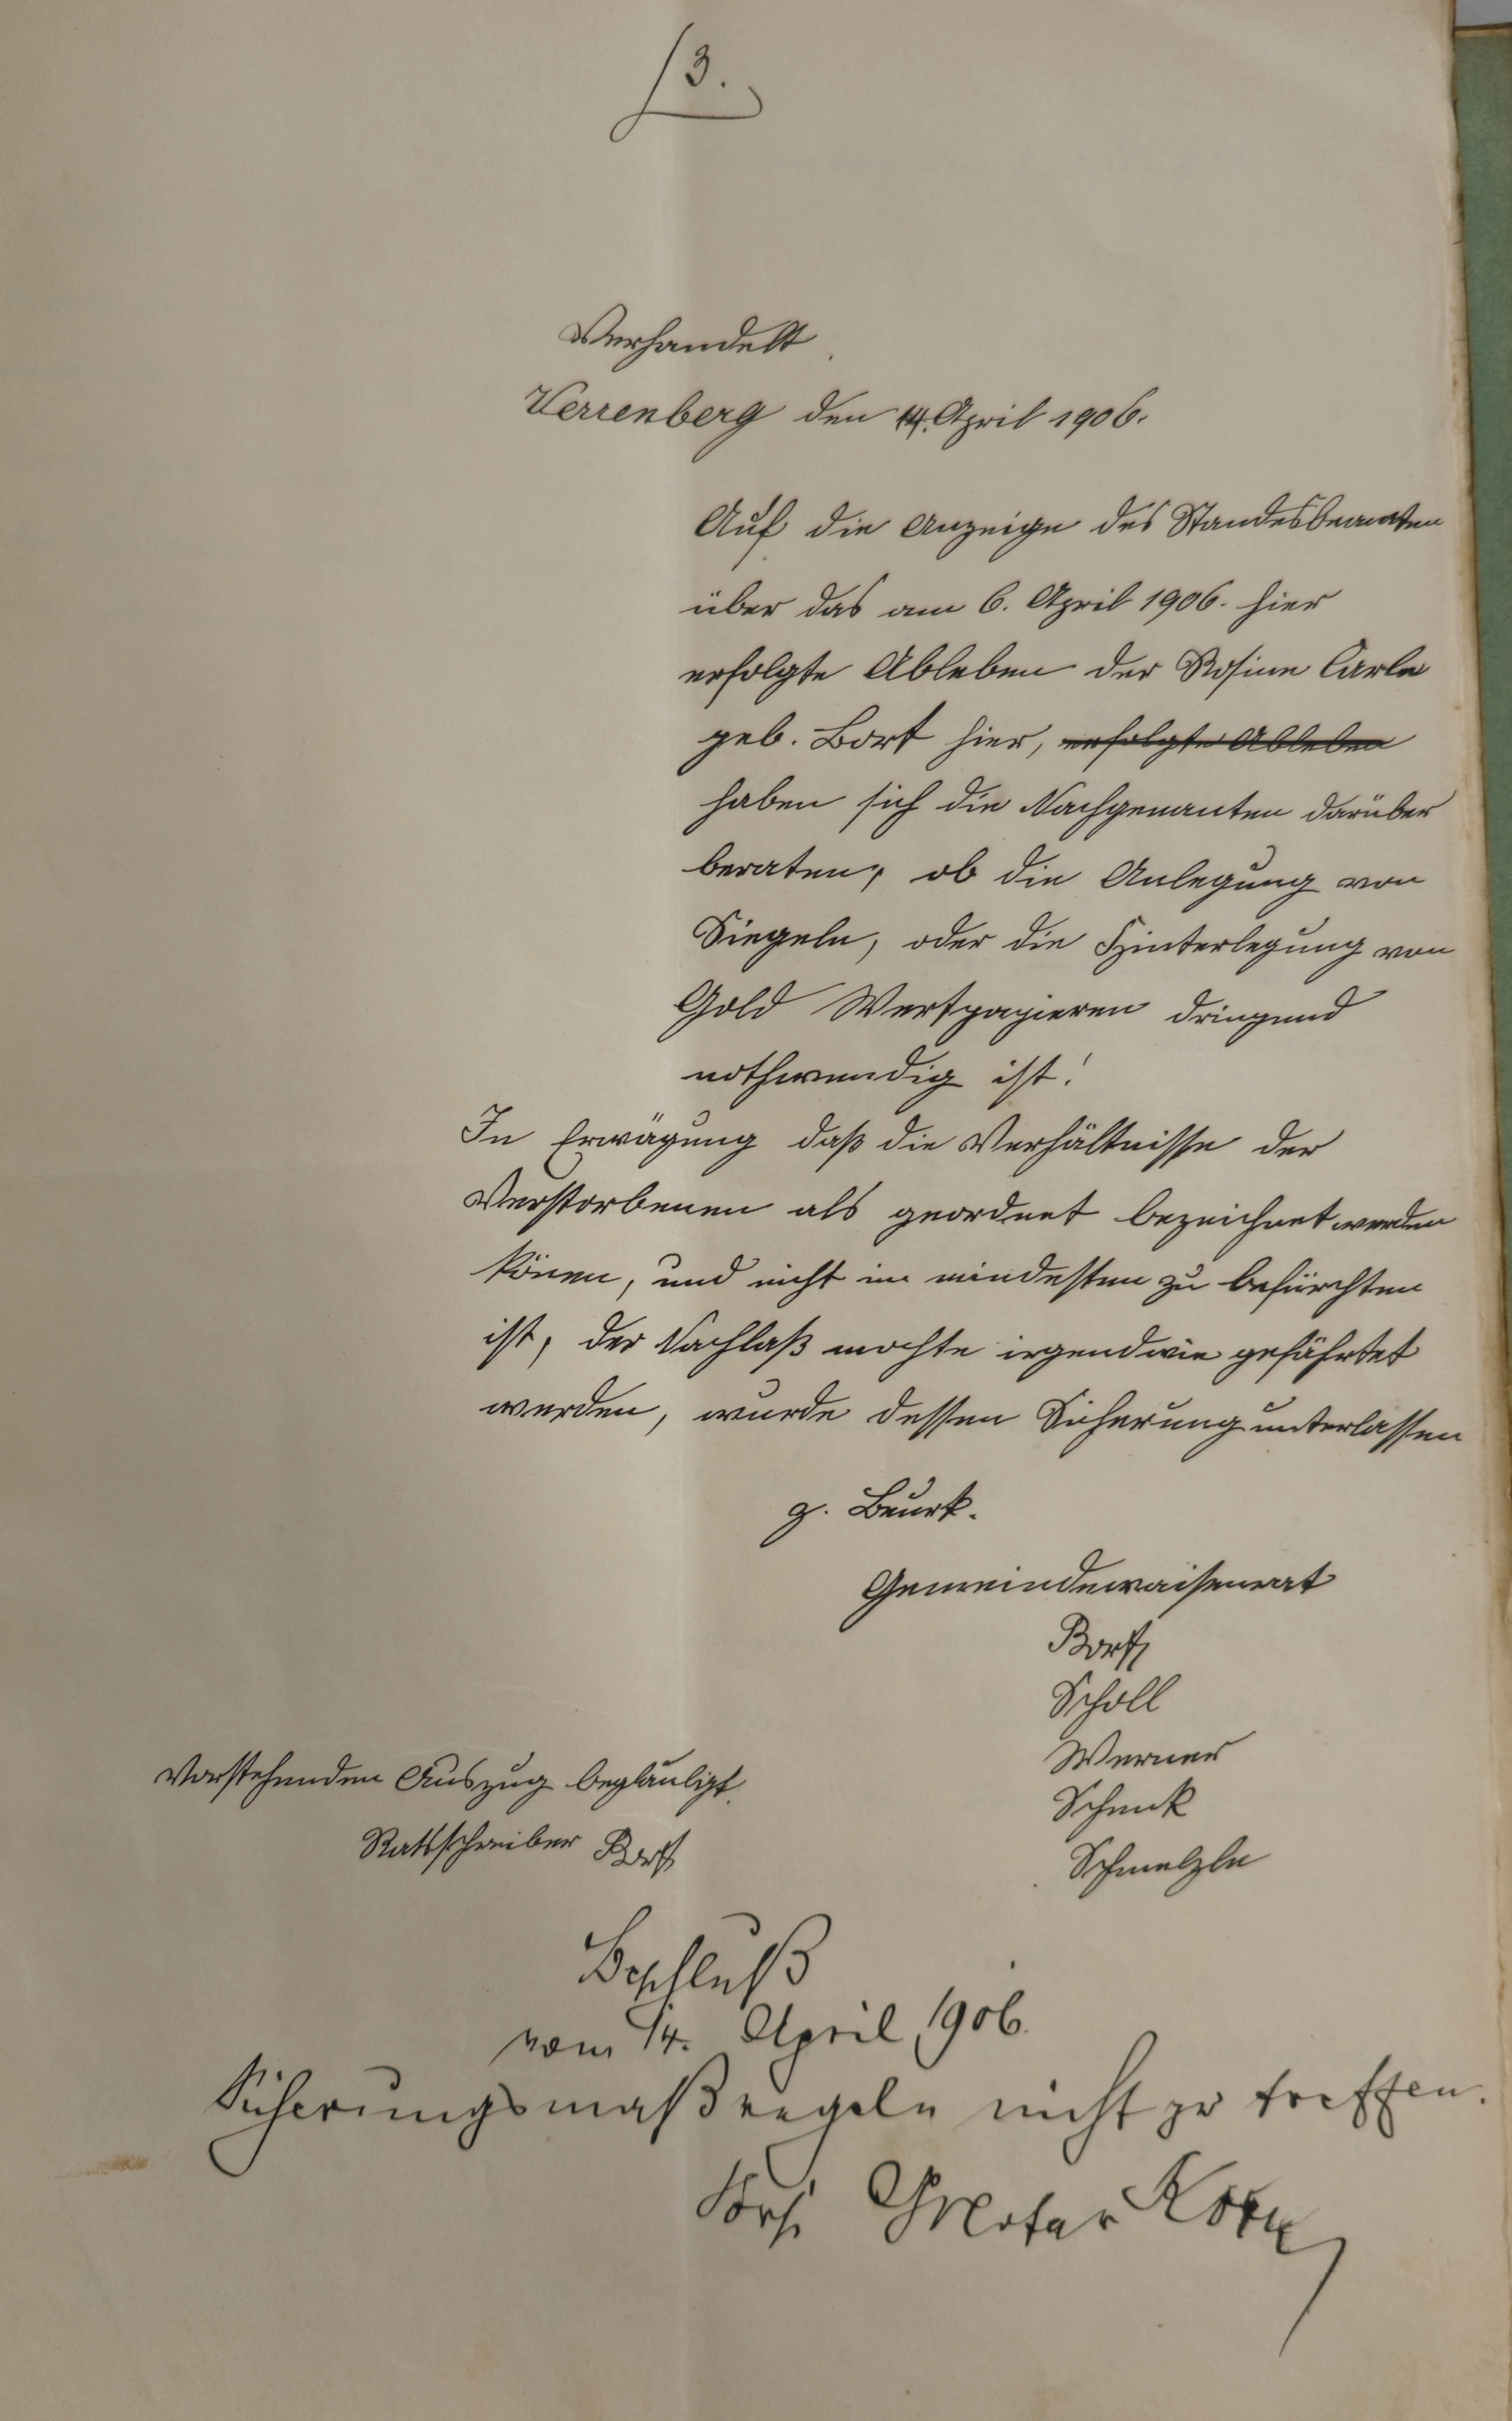 3.
Verhandelt
Verrenberg den 14. April 1906.
Auf die Anzeige des Standesbeamten
über das am 6. April 1906. hier
erfolgte Ableben der Rosine Carle
geb. Bort hier, erfolgte Ableben
haben sich die Nachgenanten darüber
beraten, ob die Anlegung von
Siegeln, oder die Hinterlegung von
Gold Wertpapieren dringend
nothwendig ist!
In Erwägung daß die Verhältnisse der
Verstorbenen als geordnet bezeichnet werden
könen, und nicht im mindesten zu befürchten
ist, der Nachlaß mochte irgendwie gefährtet
werden, wurde dessen Sicherung unterlassen
z. Beurk.
Gemeindewaisenrat
Bort
Scholl
Werner
Schenk
Schmelzle
Vorstehenden Auszug beglaubigt.
Ratsschreiber Bort
Beschluß
vom 14. April 1906.
Sicherungsmaßregeln nicht zu treffen.
Vors.